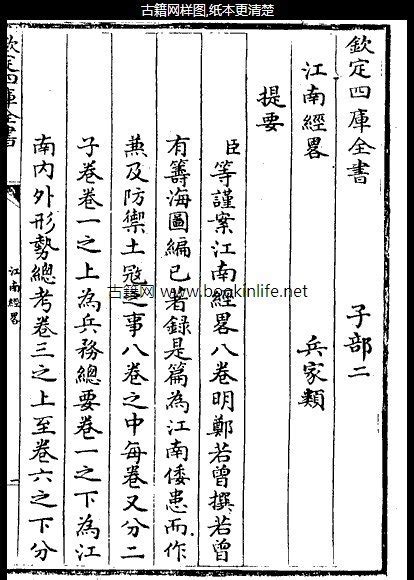 古籍网样图,纸本更清楚
欽定四庫全書 子部二
江南經畧 兵家類
提要
臣等謹案江南經畧八卷明鄭若曾撰若曾
有籌海圖編已著錄是篇為江南倭患而作
兼及防禦土冦之事八卷之中每卷又分二
子卷卷一之上為兵務總要卷一之下為江
南内外形勢總考卷三之上至卷六之下分
欽定四庫全書
江南經畧
一
古籍网 www.bookinlife.net